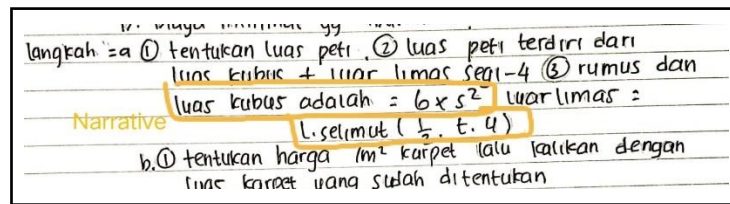 langkah =a ① tentukan luas peti. ② luas peti terdiri dari
luas kubus + luar limas segi-4 ③ rumus dan
luas kubus adalah = 6 x s² luar limas =
Narrative
L. selimut ( 1/2 . t. 4)
b. ① tentukan harga /m² karpet lalu kalikan dengan
luas karpet yang sudah ditentukan